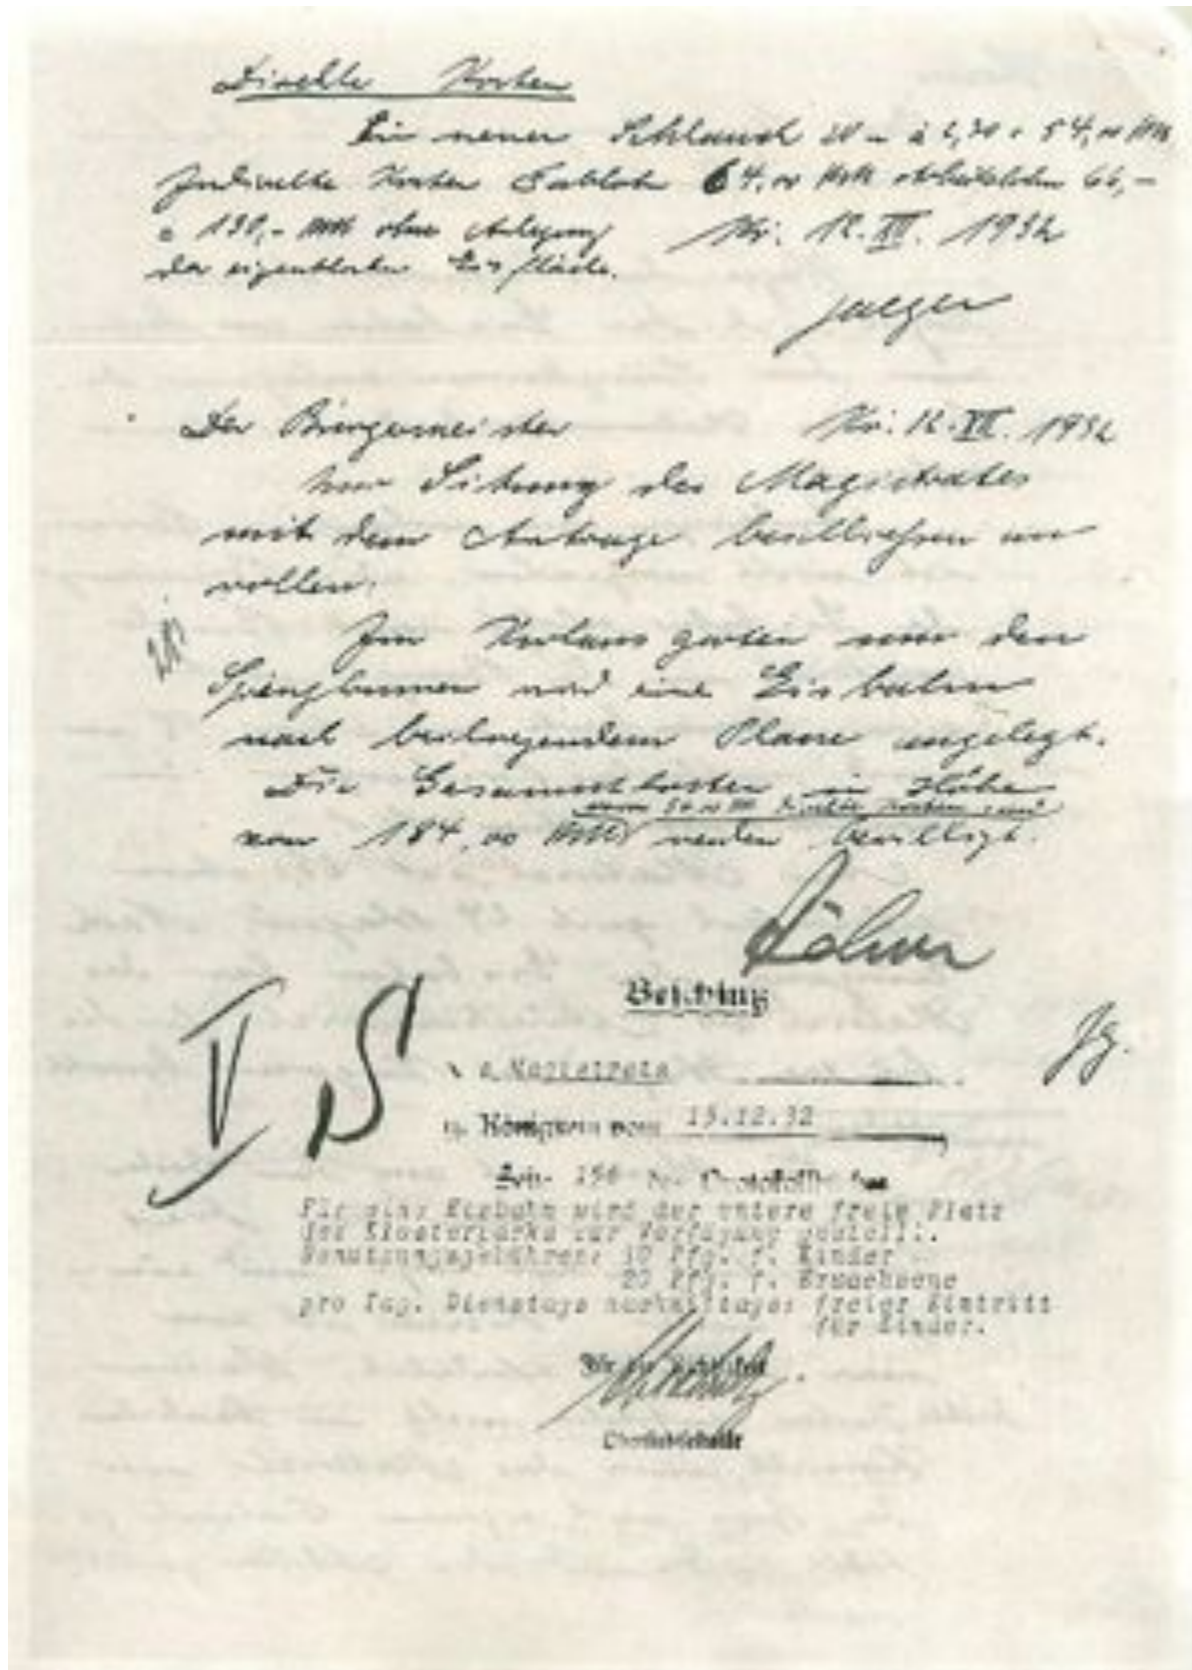 Direkte Kosten
Ein neuer Schlauch 20 - à 2,70 = 54,00 RM
Indirekte Kosten 64,00 RM Arbeitslohn 66,-
= 130,- RM ohne Anlegung Kö. 12. XII. 1932
der eigentlichen Eisfläche.
Jaeger
Der Bürgermeister Kö. 12. XII. 1932
zur Sitzung des Magistrates
mit dem Antrage beschliessen zu
wollen:
Im garten um den
Springbrunnen wird eine Eisbahn
nach beiliegendem Plane angelegt.
Die Gesamtkosten in Höhe
54,00 RM direkte Kosten sind
von 184,00 RM werden bewilligt.
Beschluß
V S
Jg.
des Magistrats
in Königstein vom 15.12.32
Seite 156 des Protokollbuches
Für eine Eisbahn wird der untere freie Platz
des Klosterparks zur Verfügung gestellt.
Benutzungsgebühren: 10 Pfg. f. Kinder
20 Pfg. f. Erwachsene
pro Tag. Dienstags nachmittags: freier Eintritt
für Kinder.
Für die Richtigkeit